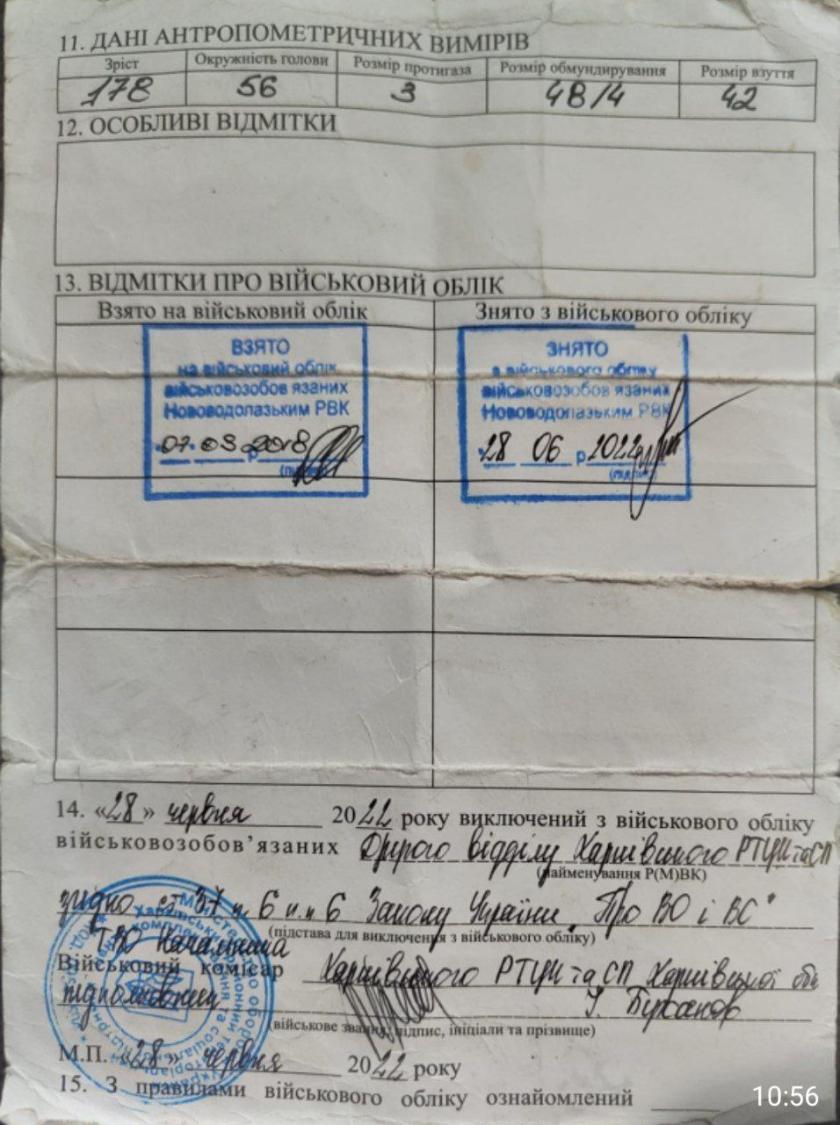 11. ДАНІ АНТРОПОМЕТРИЧНИХ ВИМІРІВ
Зріст Окружність голови Розмір протигаза Розмір обмундирування Розмір взуття
178 56 3 48/4 42
12. ОСОБЛИВІ ВІДМІТКИ
13. ВІДМІТКИ ПРО ВІЙСЬКОВИЙ ОБЛІК
Взято на військовий облік Знято з військового обліку
ВЗЯТО
на військовий облік
військовозобов язаних
Нововодолазьким РВК
07 03 2018 р
(підпис)
ЗНЯТО
з військового обліку
військовозобов язаних
Нововодолазьким РВК
28 06 р 2022
(підпис)
14. «28» червня 2022 року виключений з військового обліку
військовозобов'язаних Другого відділу Харківського РТЦК та СП
(найменування Р(М)ВК)
згідно ст 37 п. 6 п.п 6 Закону України „Про ВО і ВС"
(підстава для виключення з військового обліку)
ТВО начальника
Військовий комісар Харківського РТЦК та СП Харківської обл
підполковник
(військове звання, підпис, ініціали та прізвище)
М.П. «28» червня 2022 року
15. З правилами військового обліку ознайомлений
10:56